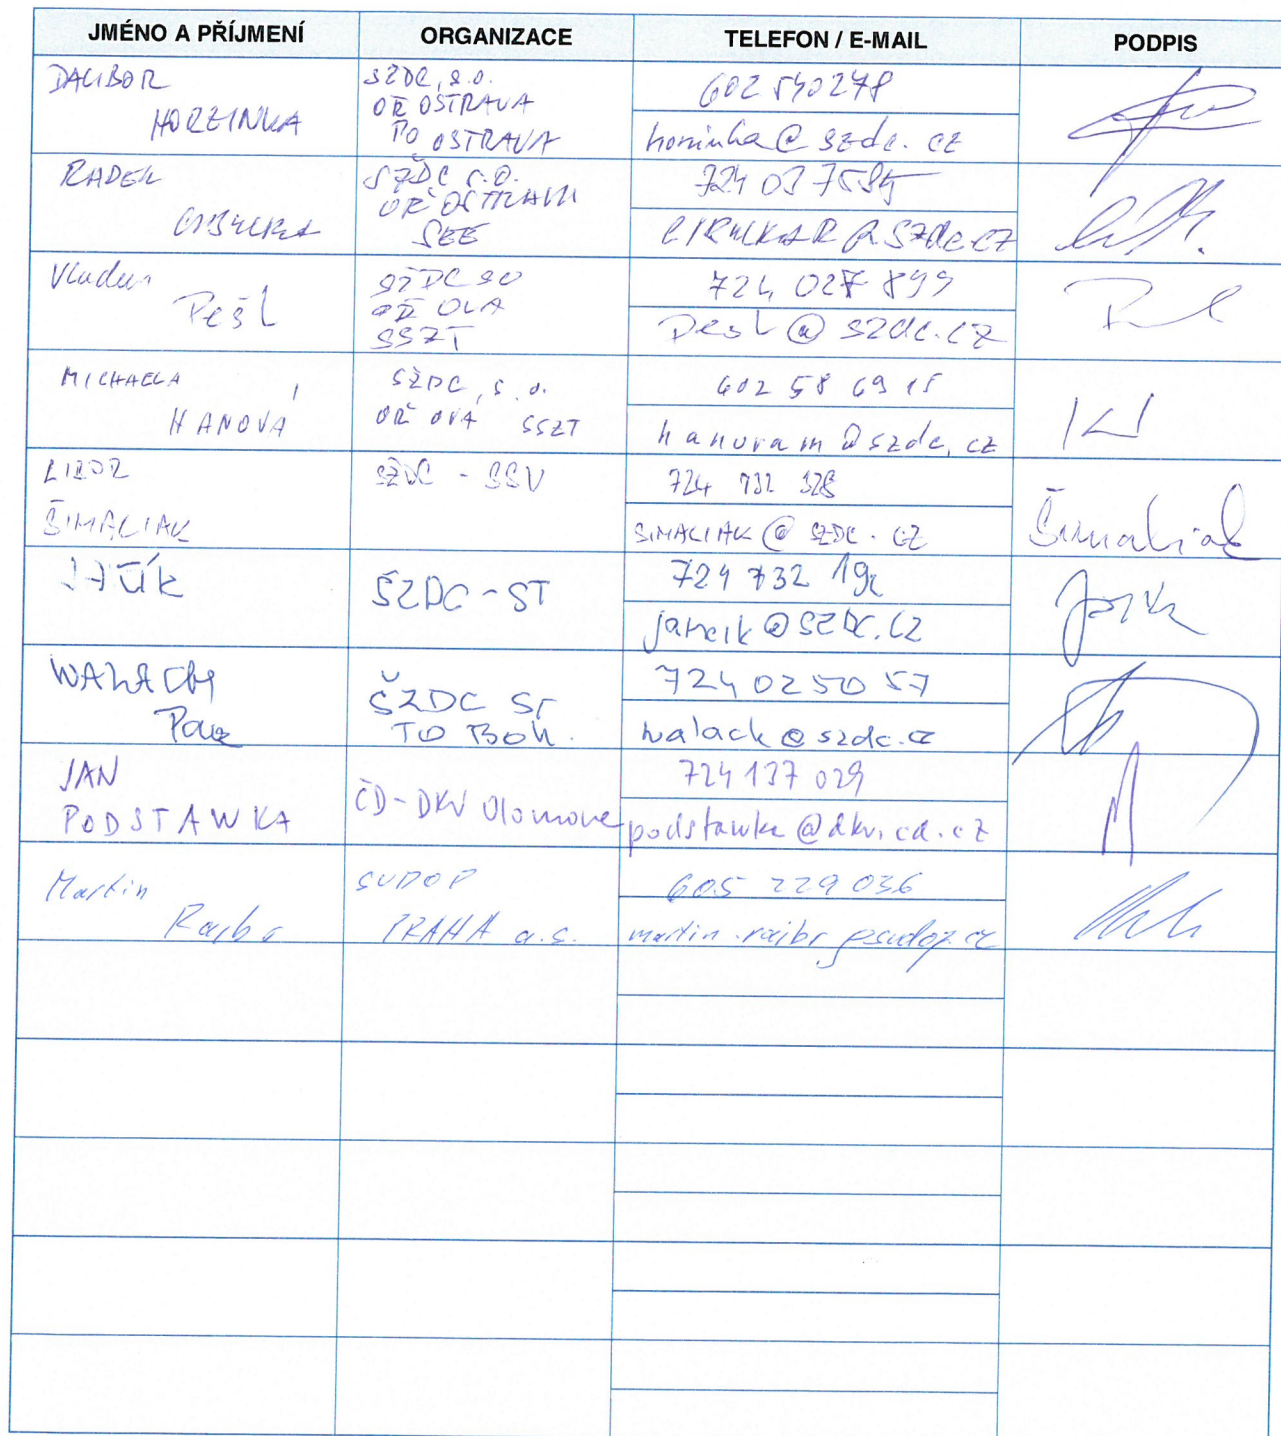 JMÉNO A PŘÍJMENÍ ORGANIZACE TELEFON / E-MAIL PODPIS
DALIBOR
HORZINKA
SŽDC, s.o.
OŘ OSTRAVA
PO OSTRAVA
602 540278
@ szdc. cz
RADEK
SŽDC s.o.
OŘ OSTRAVA
SEE
CIRKULKAR @ SZDC.CZ
Pešl
SŽDC SO
OŘ OVA
SSZT
724 027 899
Pesl @ szdc.cz
MICHAELA
HANOVÁ
SŽDC, s.o.
OŘ OVA SSZT
602 58 69 15
hanovam@szdc.cz
LIBOR
ŠIMALIAK
SŽDC - SSV
724 732 328
SIMALIAK @ SZDC.CZ
Šimaliak
SŽDC - ST
724 732
jancik@SZDC.CZ
WALACH
SŽDC ST
TO BOH.
724 025057
walach@szdc.cz
JAN
PODSTAWKA
ČD-DKV Olomouc
724 137 029
podstawka@dkv.cd.cz
Martin
SUDOP
PRAHA a.s.
605 229 036
martin.raibr@sudop.cz